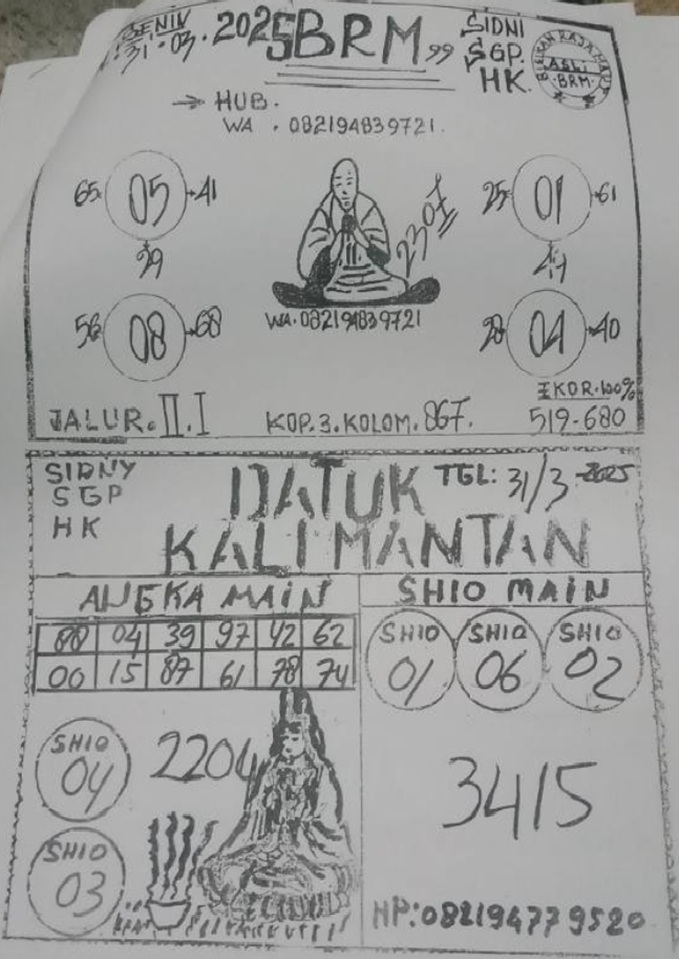 SENIN
31.03.2025
BRM 99
SIDNI
SGP.
HK.
ASLI
BRM
→ HUB.
WA . 082194839721.
65 05 41
29
25 01 61
2307
56 08 68
WA.082194839721
28 04 40
EKOR.100%
JALUR. II. I
KOP.3.KOLOM.867.
519-680
SIDNY
SGP
HK
DATUK
KALIMANTAN
TGL: 31/3-2025
ANGKA MAIN
SHIO MAIN
04 39 97 42 62
00 15 87 61 78 74
SHIO 01
SHIO 06
SHIO 02
SHIO 04
2204
3415
SHIO 03
HP:082194779520